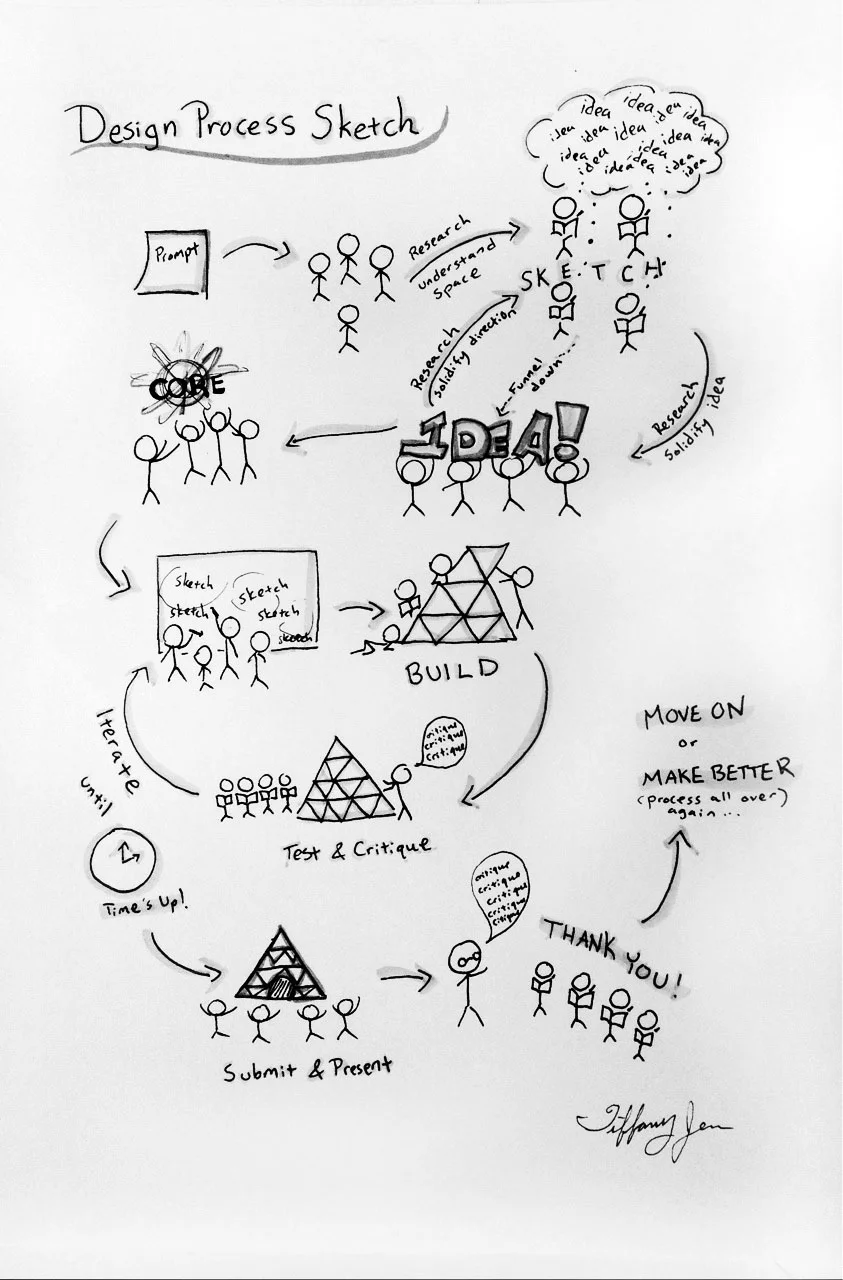 Design Process Sketch
idea idea idea idea
idea idea idea idea idea
idea idea idea idea
idea idea idea
Prompt
Research
understand
space
SKETCH
Research
solidify direction
Funnel
down...
Research
Solidify idea
CORE
IDEA!
Sketch
sketch
sketch
sketch
sketch
BUILD
Iterate
until
critique
critique
critique
Test & Critique
Time's Up!
MOVE ON
or
MAKE BETTER
(process all over)
again...
critique
critique
critique
critique
critique
THANK YOU!
Submit & Present
Tiffany Jen